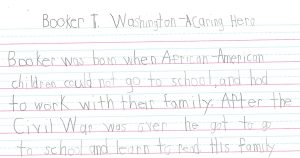 Booker T. Washington-A Caring Hero
Booker was born when African-American
children could not go to school, and had
to work with their family. After the
Civil War was over he got to go
to school and learn to read. His family